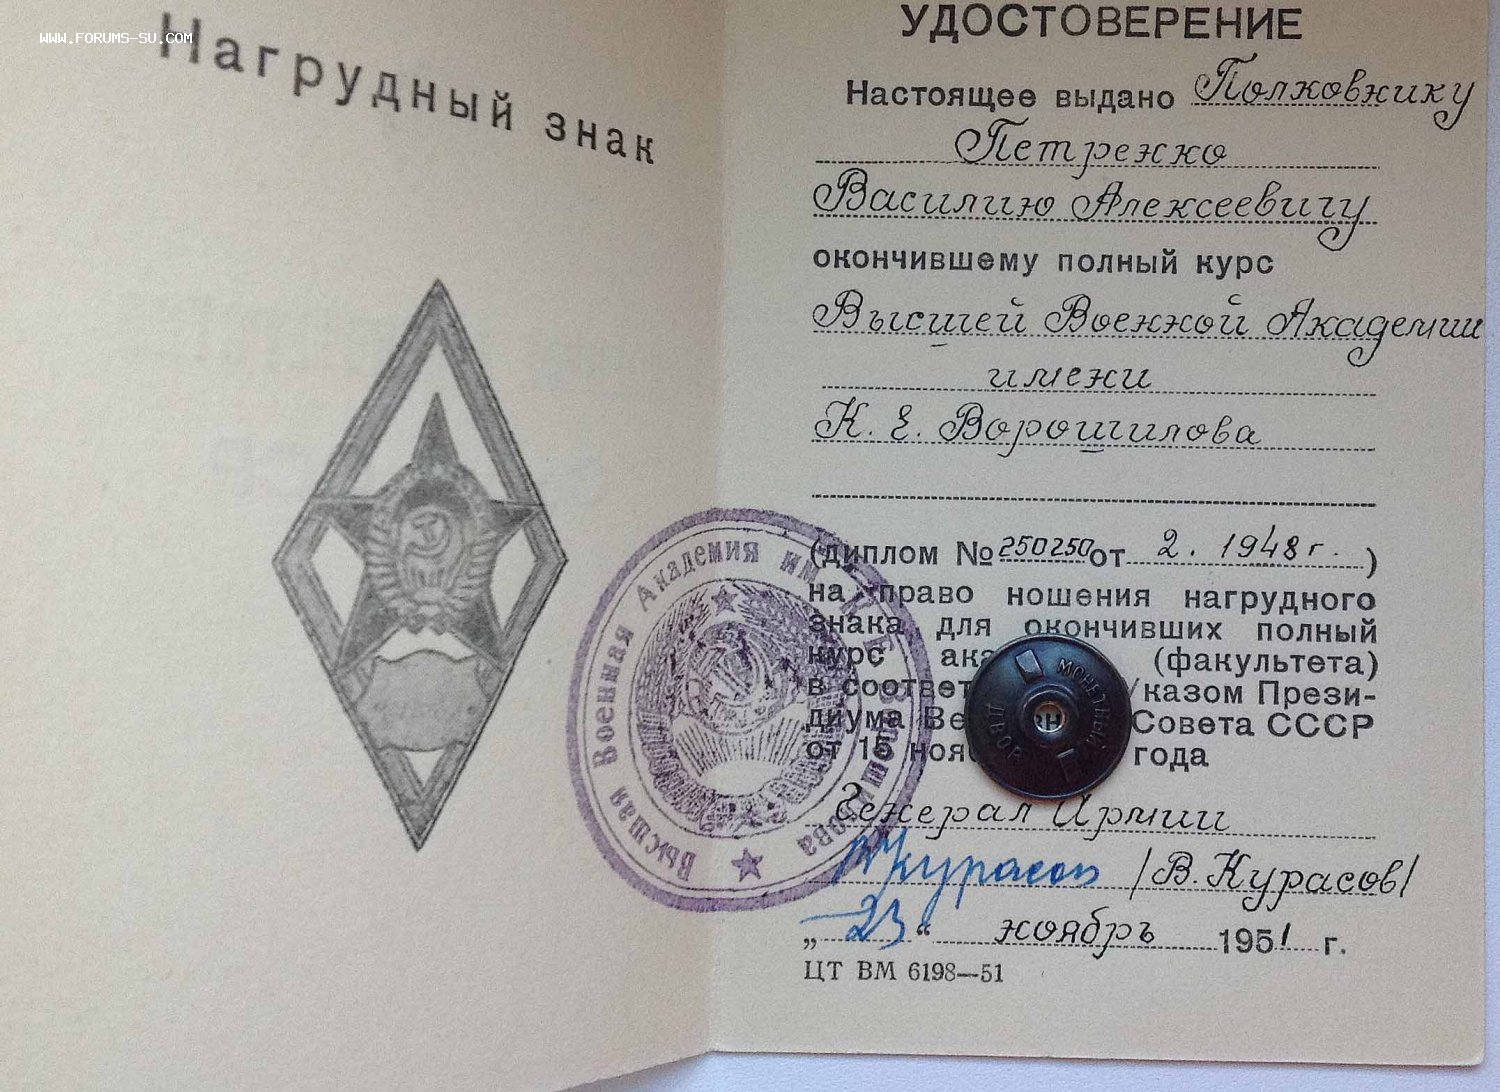 WWW.FORUMS-SU.COM
Нагрудный знак
УДОСТОВЕРЕНИЕ
Настоящее выдано Полковнику
Петренко
Василию Алексеевичу
окончившему полный курс
Высшей Военной Академии
имени
К. Е. Ворошилова
(диплом № 250250 от 2. 1948 г. )
на право ношения нагрудного
знака для окончивших полный
курс (факультета)
в Прези-
диума Совета СССР
от 15 года
МОНЕТНЫЙ
ДВОР
Высшая Военная Академия им К Е Ворошилова
Генерал Армии
Курасов /В. Курасов/
„ 23 “ ноябрь 1951 г.
ЦТ ВМ 6198—51